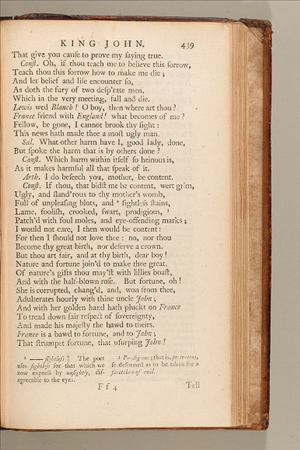 KING JOHN. 439
That give you cause to prove my saying true.
Const. Oh, if thou teach me to believe this sorrow,
Teach thou this sorrow how to make me die;
And let belief and life encounter so,
As doth the fury of two desp'rate men,
Which in the very meeting, fall and die.
Lewis wed Blanch! O boy, then where art thou?
France friend with England! what becomes of me?
Fellow, be gone, I cannot brook thy sight:
This news hath made thee a most ugly man.
Sal. What other harm have I, good lady, done,
But spoke the harm that is by others done?
Const. Which harm within itself so heinous is,
As it makes harmful all that speak of it.
Arth. I do beseech you, mother, be content.
Const. If thou, that bidst me be content, wert grim,
Ugly, and sland'rous to thy mother's womb,
Full of unpleasing blots, and sightless stains,
Lame, foolish, crooked, swart, prodigious,
Patch'd with foul moles, and eye-offending marks;
I would not care, I then would be content:
For then I should not love thee: no, nor thou
Become thy great birth, nor deserve a crown.
But thou art fair, and at thy birth, dear boy!
Nature and fortune join'd to make thee great.
Of nature's gifts thou may'st with lillies boast,
And with the half-blown rose. But fortune, oh!
She is corrupted, chang'd, and, won from thee,
Adulterates hourly with thine uncle John;
And with her golden hand hath pluckt on France
To tread down fair respect of sovereignty,
And made his majesty the bawd to theirs.
France is a bawd to fortune, and to John;
That strumpet fortune, that usurping John!
The poet
uses sightless for that which we
now express by unsightly, dis-
agreeable to the eyes.
Prodigious; that is,
so deformed as to be taken for a
foretoken of evil.
F f 4
Tell